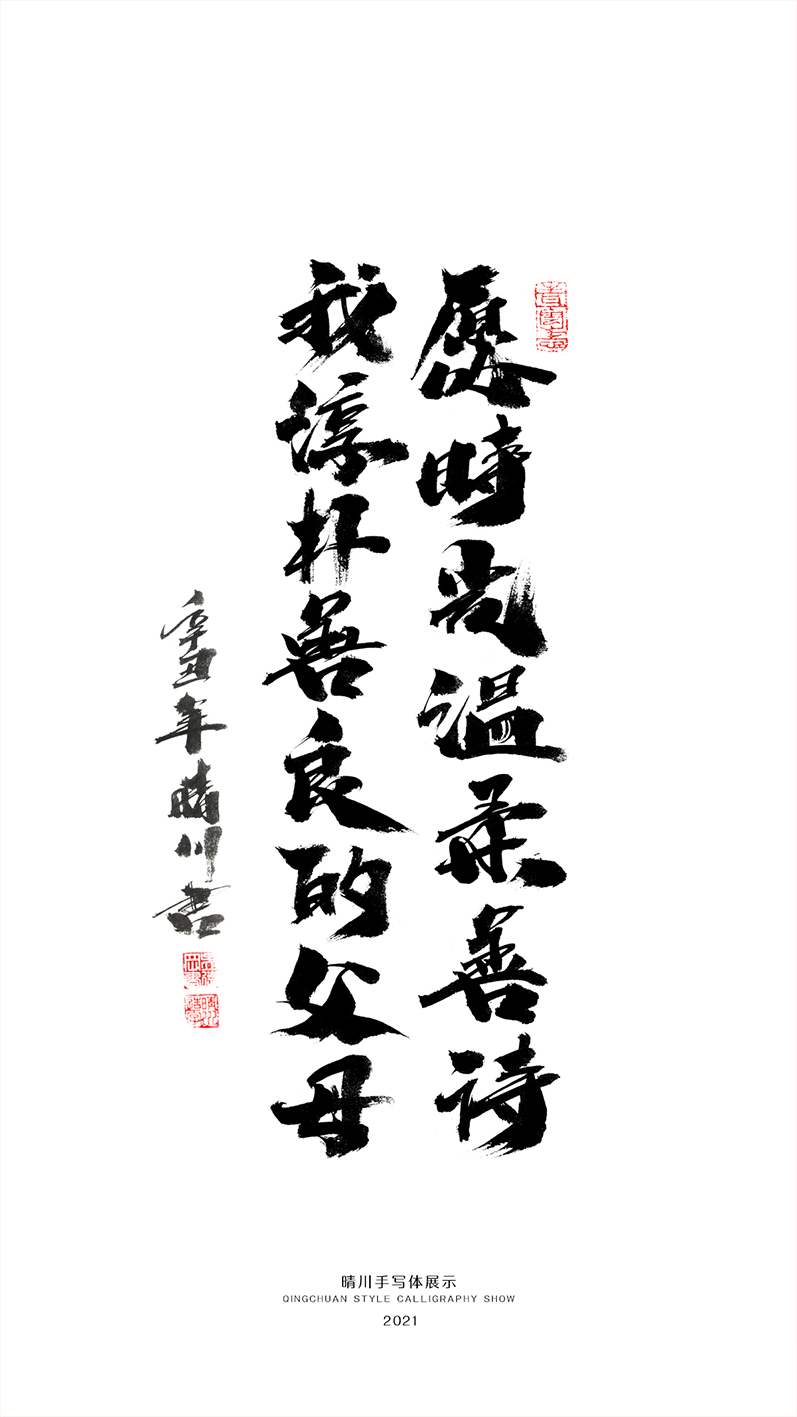 愿時光温柔善待
我淳朴善良的父母
辛丑年晴川书
晴川手写体展示
QINGCHUAN STYLE CALLIGRAPHY SHOW
2021